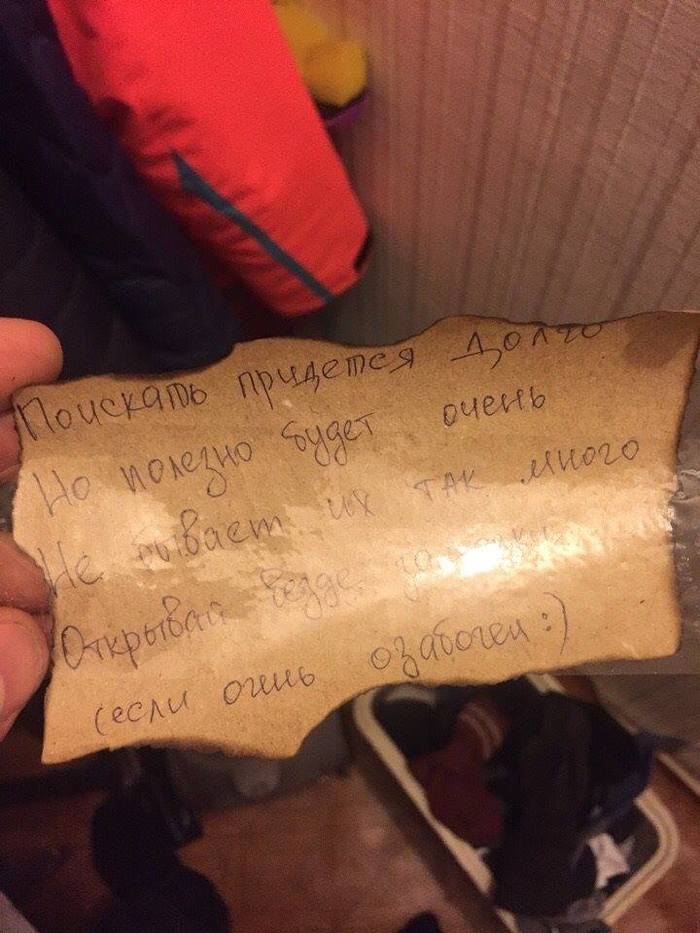 Поискать придется Долго
Но полезно будет очень
Не бывает их так много
Открывай везде
(если очень озабочен :)